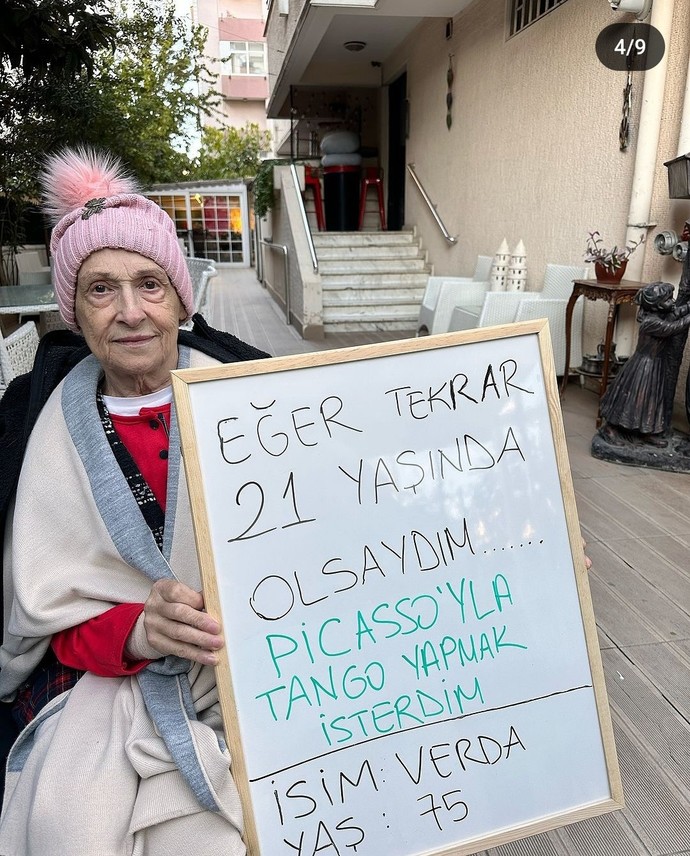 4/9
EĞER TEKRAR
21 YAŞINDA
OLSAYDIM.......
PİCASSO'YLA
TANGO YAPMAK
İSTERDİM
İSİM: VERDA
YAŞ : 75